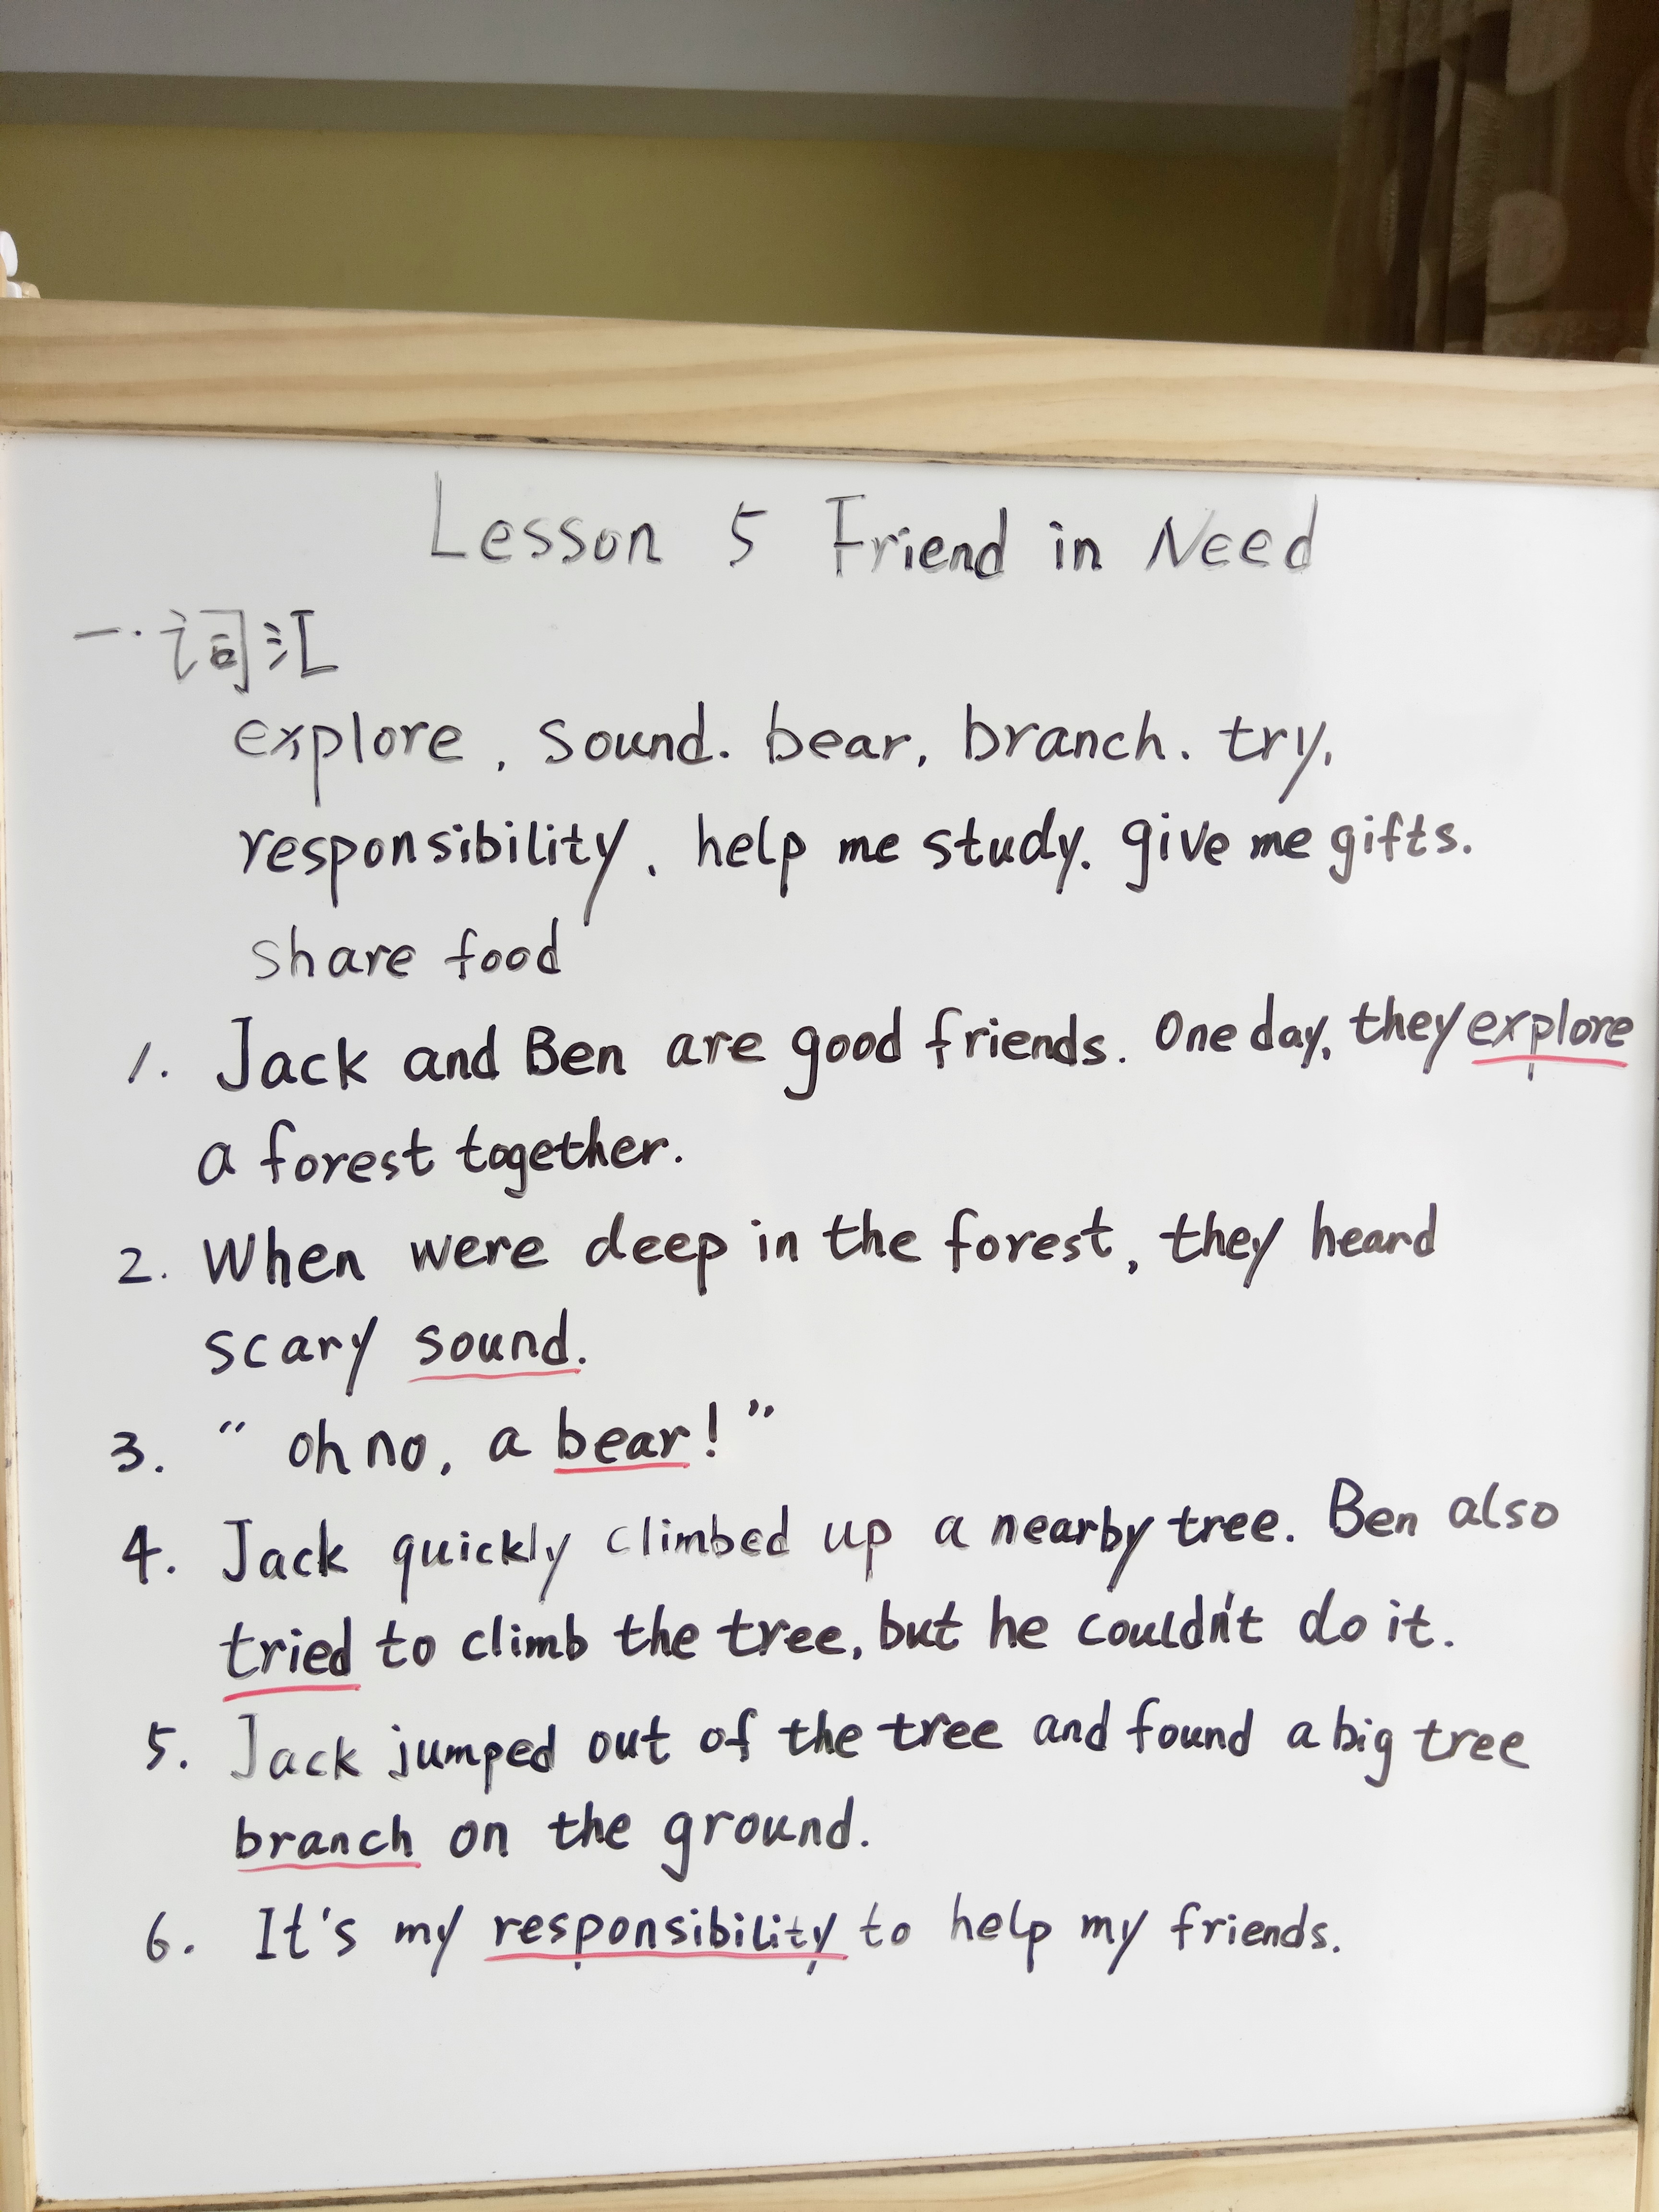 Lesson 5 Friend in Need
一.词汇
explore, sound. bear, branch. try,
responsibility, help me study. give me gifts.
share food
1. Jack and Ben are good friends. One day, they explore
a forest together.
2. When were deep in the forest, they heard
scary sound.
3. " oh no, a bear! "
4. Jack quickly climbed up a nearby tree. Ben also
tried to climb the tree, but he couldn't do it.
5. Jack jumped out of the tree and found a big tree
branch on the ground.
6. It's my responsibility to help my friends.